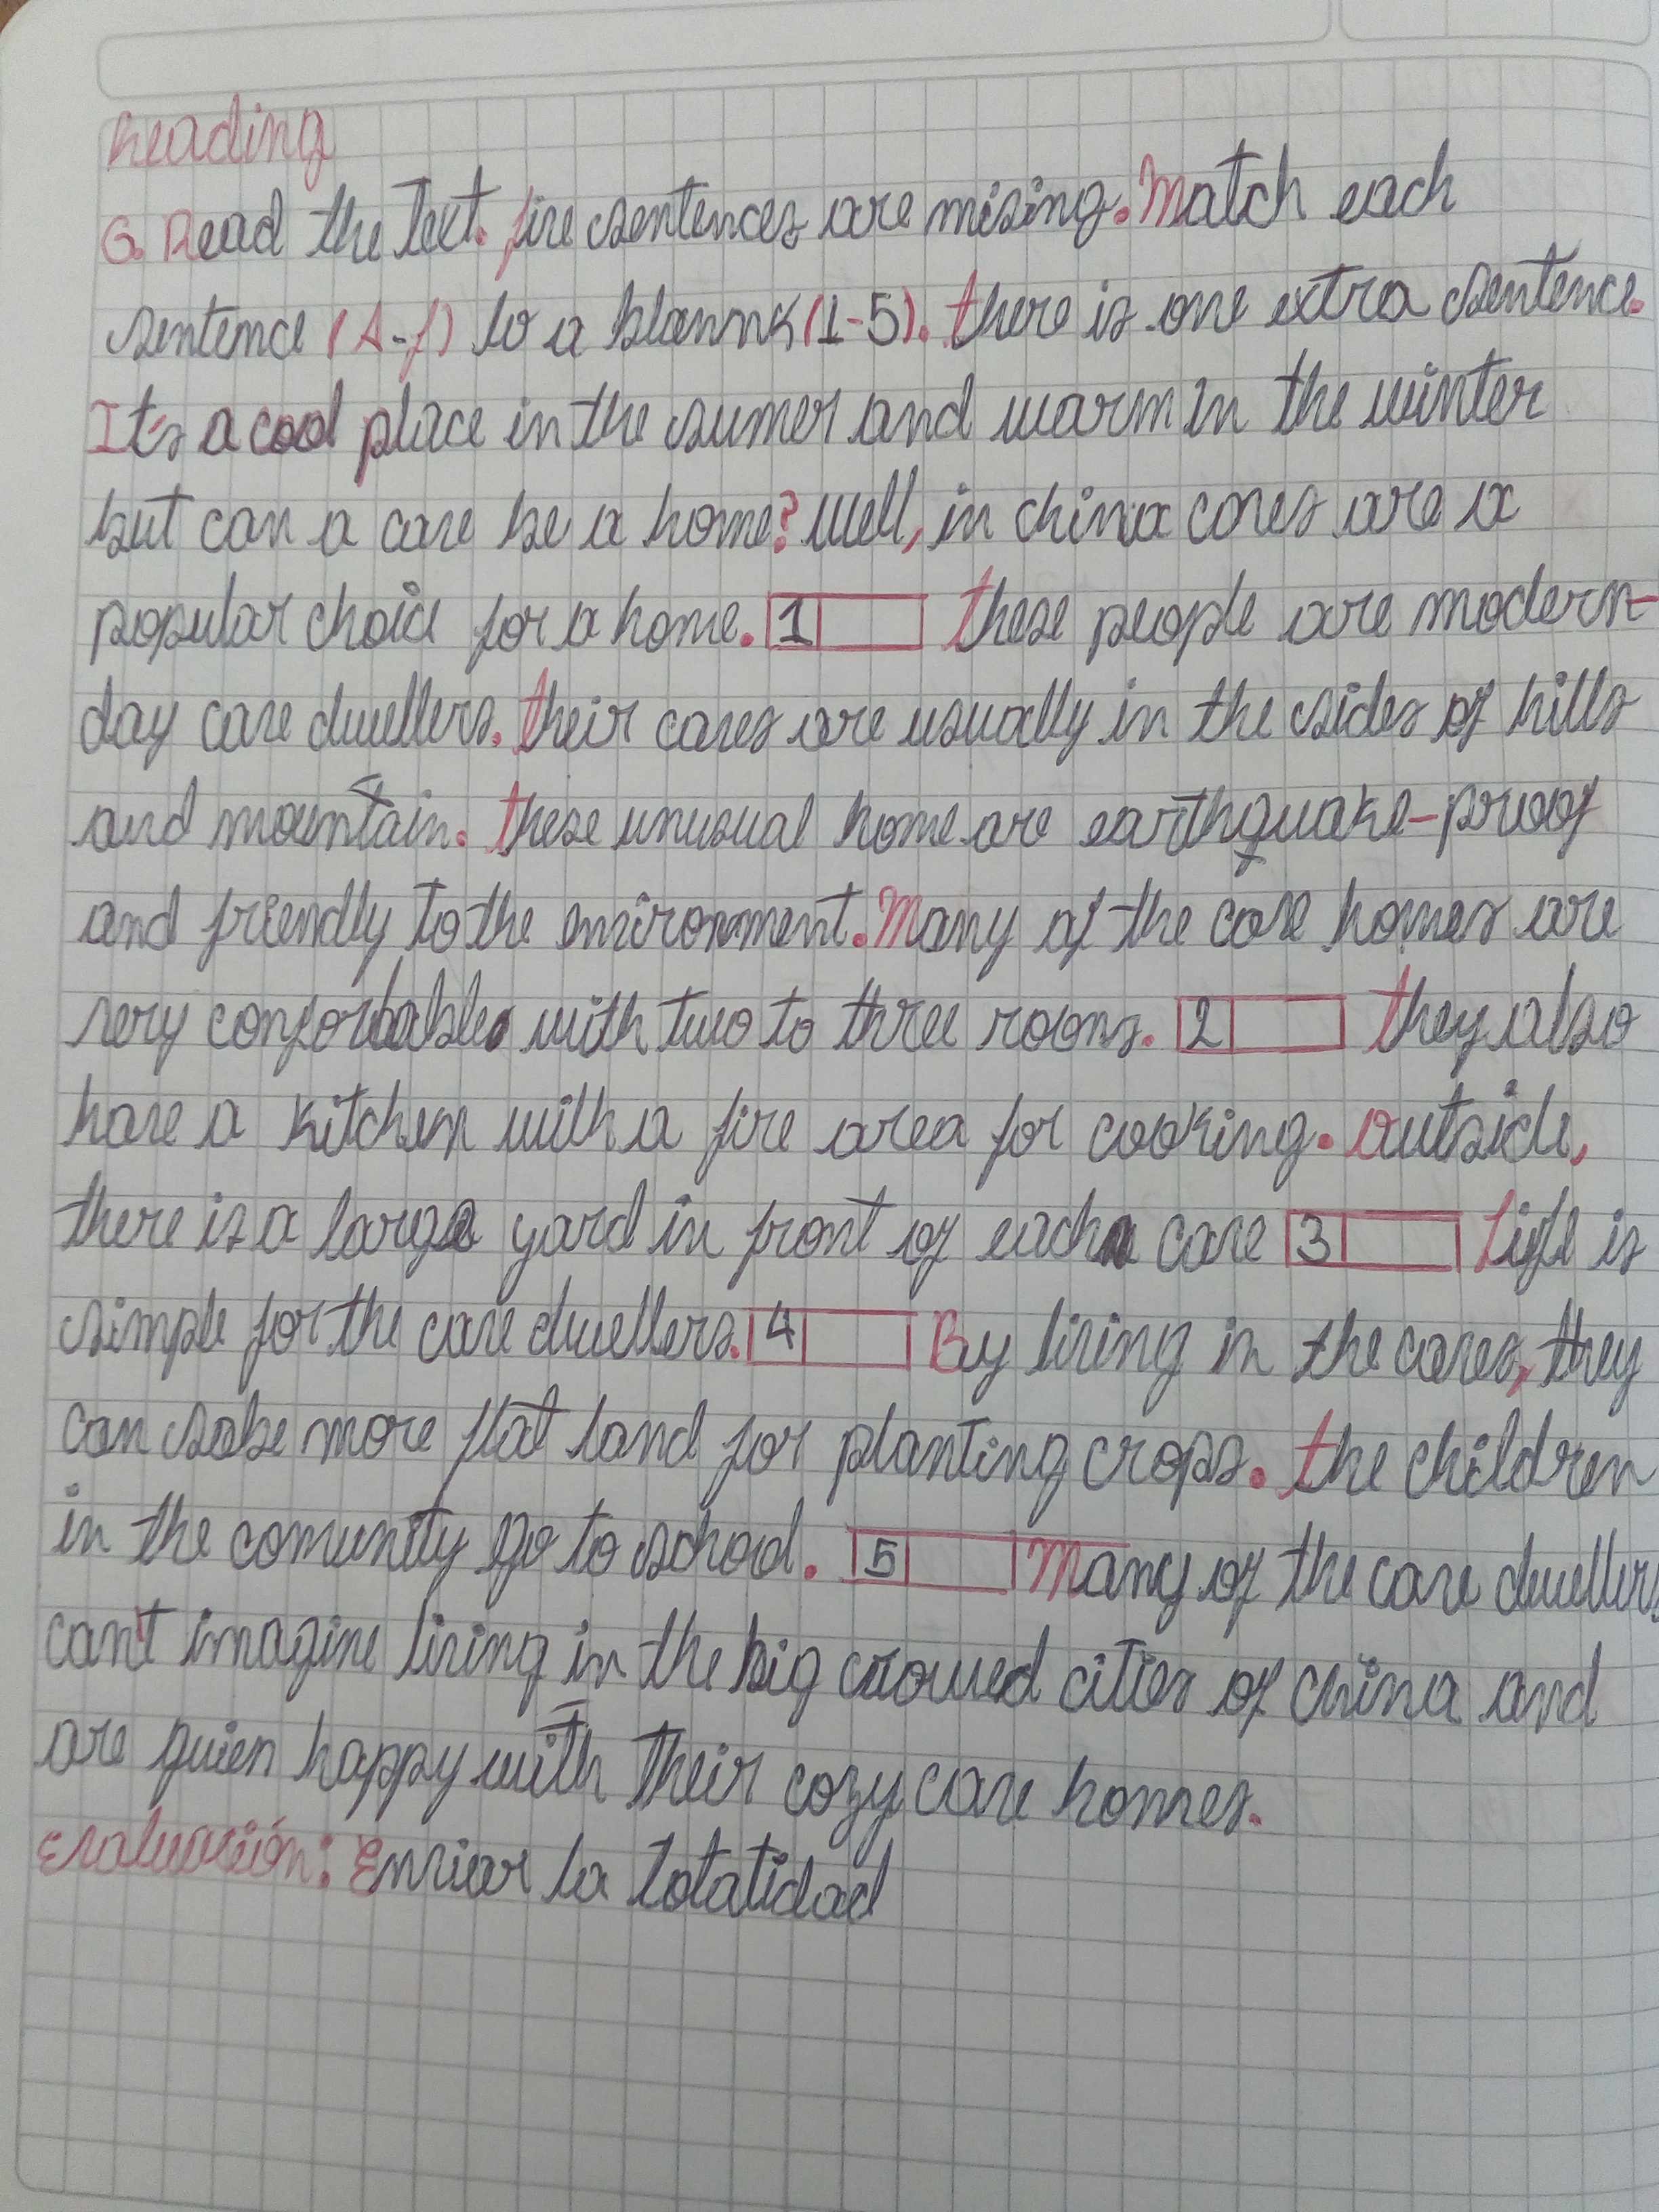 Reading
G. Read the Text. five sentences are mising. Match each
sentence (A-f) to a blannk (1-5). there is one extra sentence.
It's a cool place in the sumer and warm in the winter
but can a cave be a home? Well, in china caves are a
popular choice for a home. 1 these people are modern-
day cave dwellers. their caves are usually in the sides of hills
and mountain. these unusual home are earthquake-proof
and friendly to the environment. Many of the cave homes are
very conforbable with two to three rooms. 2 they also
have a kitchen with a fire area for cooking. outside,
there is a large yard in front of each cave 3 Life is
simple for the cave dwellers. 4 By living in the caves, they
can sabe more flat land for planting crops. the children
in the comunity go to school. 5 Many of the cave dwellers
can't imagine living in the big crowed cities of china and
are quien happy with their cozy cave homes.
Evaluación: Enviar la totalidad